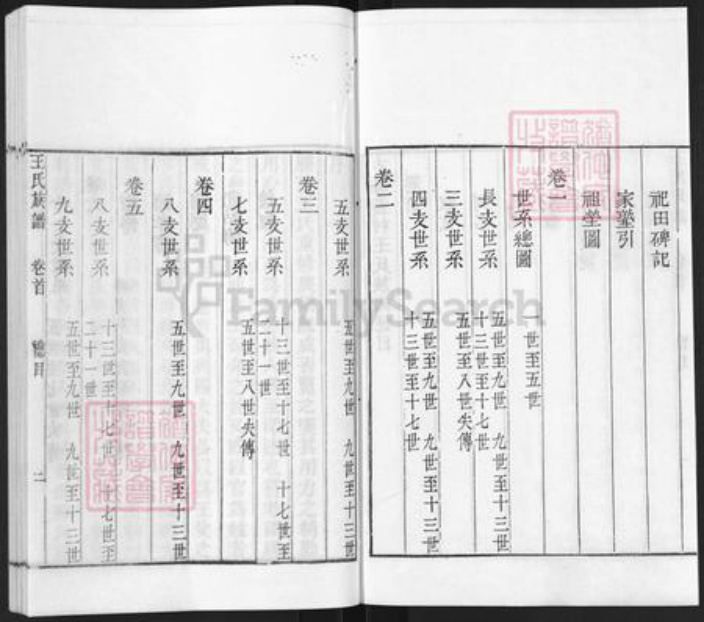 祀田碑記
家塾引
祖塋圖
卷一
世系總圖 一世至五世
長支世系 五世至九世 九世至十三世
十三世至十七世
三支世系 五世至八世失傳
四支世系 五世至九世 九世至十三世
十三世至十七世
卷二
五支世系 五世至九世 九世至十三世
卷三
五支世系 十三世至十七世 十七世至
二十一世
七支世系 五世至八世失傳
卷四
八支世系 五世至九世 九世至十三世
卷五
八支世系 十三世至十七世 十七世至
二十一世
九支世系 五世至九世 九世至十三世
王氏族譜 卷首 總目 二
FamilySearch